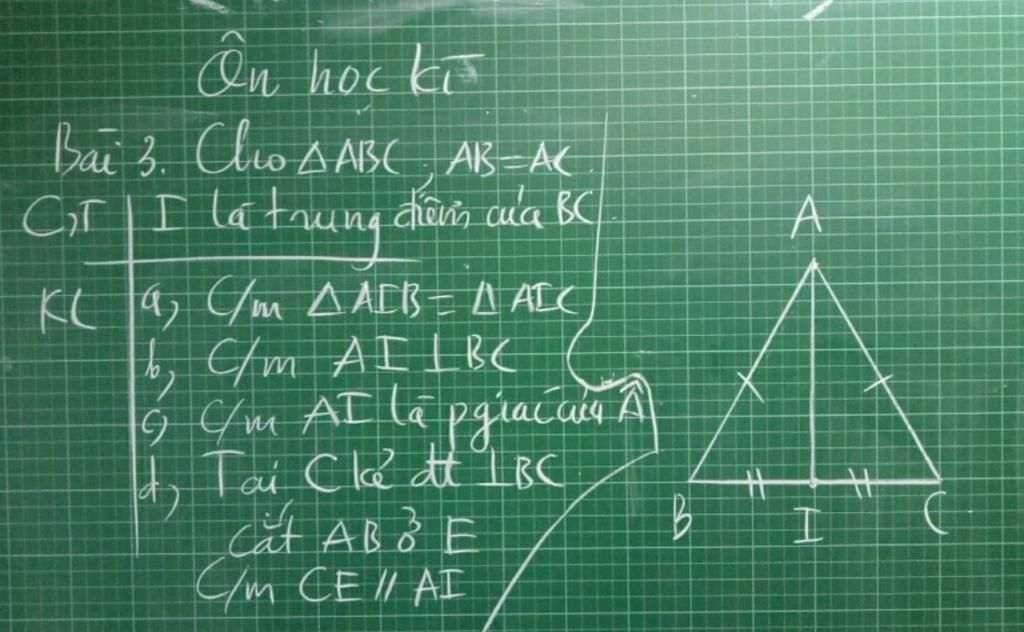 Ôn học kì
Bài 3. Cho △ABC, AB=AC
GT I là trung điểm của BC
KL a, C/m △AIB = △AIC
b, C/m AI ⊥ BC
c, C/m AI là pgiác của Â
d, Tại C kẻ đt ⊥ BC
cắt AB ở E
C/m CE // AI
A
B
I
C